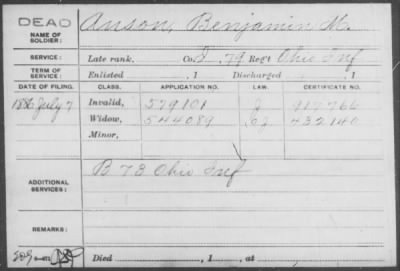 DEAD Anson, Benjamin M.
NAME OF SOLDIER:
SERVICE: Late rank, Co. I, 79 Reg't Ohio Inf
TERM OF SERVICE: Enlisted , 1 Discharged , 1
DATE OF FILING. CLASS. APPLICATION NO. LAW. CERTIFICATE NO.
1886 July 7 Invalid, 579101 J 917766
Widow, 544089 G J 732140
Minor,
ADDITIONAL SERVICES: B 73 Ohio Inf
REMARKS:
Died , 1 , at